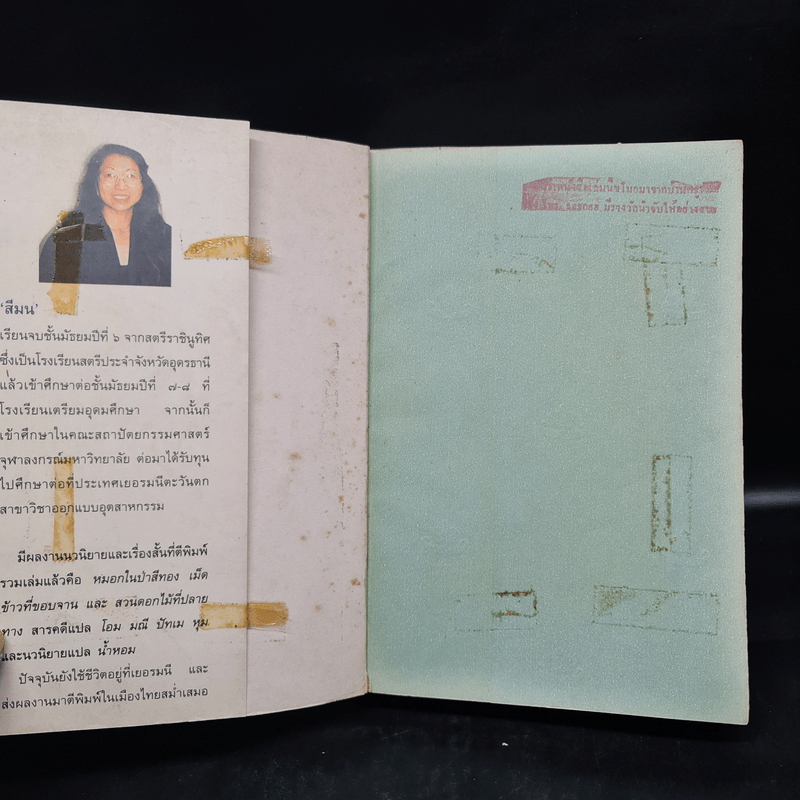 'สีมน'
เรียนจบชั้นมัธยมปีที่ ๖ จากสตรีราชินูทิศ
ซึ่งเป็นโรงเรียนสตรีประจำจังหวัดอุดรธานี
แล้วเข้าศึกษาต่อชั้นมัธยมปีที่ ๗-๘ ที่
โรงเรียนเตรียมอุดมศึกษา จากนั้นก็
เข้าศึกษาในคณะสถาปัตยกรรมศาสตร์
จุฬาลงกรณ์มหาวิทยาลัย ต่อมาได้รับทุน
ไปศึกษาต่อที่ประเทศเยอรมนีตะวันตก
สาขาวิชาออกแบบอุตสาหกรรม
มีผลงานนวนิยายและเรื่องสั้นที่ตีพิมพ์
รวมเล่มแล้วคือ หมอกในป่าสีทอง เม็ด
ข้าวที่ขอบจาน และ สวนดอกไม้ที่ปลาย
ทาง สารคดีแปล โอม มณี ปัทเม หุม
และนวนิยายแปล น้ำหอม
ปัจจุบันยังใช้ชีวิตอยู่ที่เยอรมนี และ
ส่งผลงานมาตีพิมพ์ในเมืองไทยสม่ำเสมอ
หนังสือเล่มนี้ขโมยมาจากบ้าน
มีรางวัลนำจับให้อย่างงาม